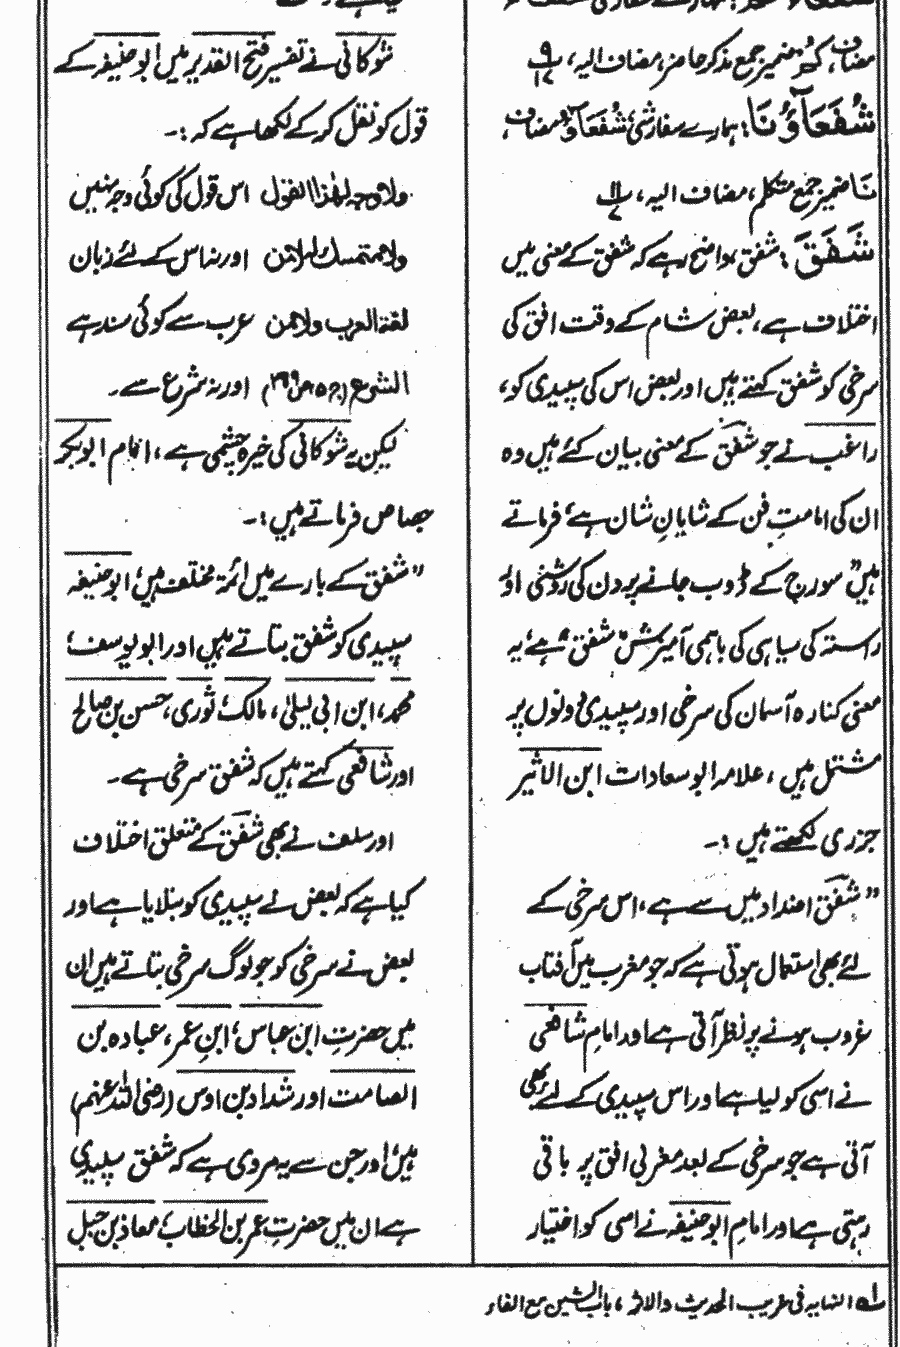 مضاف، کُمْ ضمیر جمع مذکر حاضر، مضاف الیہ،
شُفَعَآؤُنَا: ہمارے سفارشی شُفَعَآؤُ مضاف،
نَا ضمیر جمع متکلم، مضاف الیہ، ۱۱
شَفَق: شفق، واضح رہے کہ شفق کے معنی میں
اختلاف ہے، بعض شام کے وقت افق کی
سرخی کو شفق کہتے ہیں اور بعض اس کی سپیدی کو،
راغب نے جو شفق کے معنی بیان کئے ہیں وہ
ان کی امامتِ فن کے شایانِ شان ہے، فرماتے
ہیں" سورج کے ڈوب جانے پر دن کی روشنی اور
راستہ کی سیاہی کی باہمی آمیزش شفق ہے، یہ
معنی کنارہ آسمان کی سرخی اور سپیدی دونوں پر
مشتمل ہیں، علامہ ابو سعادات ابن الاثیر
جزری لکھتے ہیں :۔
" شفق اضداد میں سے ہے، اس سرخی کے
لئے بھی استعمال ہوتی ہے کہ جو مغرب میں آفتاب
غروب ہونے پر نظر آتی ہے اور امام شافعی
نے اسی کو لیا ہے اور اس سپیدی کے لئے بھی
آتی ہے جو سرخی کے بعد مغربی افق پر باقی
رہتی ہے اور امام ابو حنیفہ نے اسی کو اختیار
شوکانی نے تفسیر فتح القدیر میں ابو حنیفہ کے
قول کو نقل کر کے لکھا ہے کہ :۔
ولا وجہ لھٰذا القول اس قول کی کوئی وجہ نہیں
ولا متمسك لہ لا من اور نہ اس کے لئے زبان
لغۃ العرب ولا من عرب سے کوئی سند ہے
الشرع (ج ۵ ص ۳۹۹) اور نہ شرع سے۔
لیکن یہ شوکانی کی خیرہ چشمی ہے، امام ابو بکر
جصاص فرماتے ہیں :۔
" شفق کے بارے میں ائمہ مختلف ہیں، ابو حنیفہ
سپیدی کو شفق بتاتے ہیں اور ابو یوسف،
محمد، ابن ابی لیلیٰ، مالک، ثوری، حسن بن صالح
اور شافعی کہتے ہیں کہ شفق سرخی ہے۔
اور سلف نے بھی شفق کے متعلق اختلاف
کیا ہے کہ بعض نے سپیدی کو بتلایا ہے اور
بعض نے سرخی کو جو لوگ سرخی بتاتے ہیں ان
میں حضرتِ ابن عباس، ابنِ عمر، عبادہ بن
الصامت اور شداد بن اوس (رضی اللہ عنہم)
ہیں، اور جن سے یہ مروی ہے کہ شفق سپیدی
ہے ان میں حضرتِ عمر بن الخطاب، معاذ بن جبل
لہ النہایہ فی غریب الحدیث والاثر، باب الشین مع الفاء